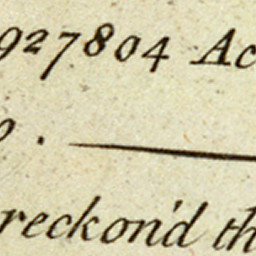 927804 Ac
o. —
reckon'd th